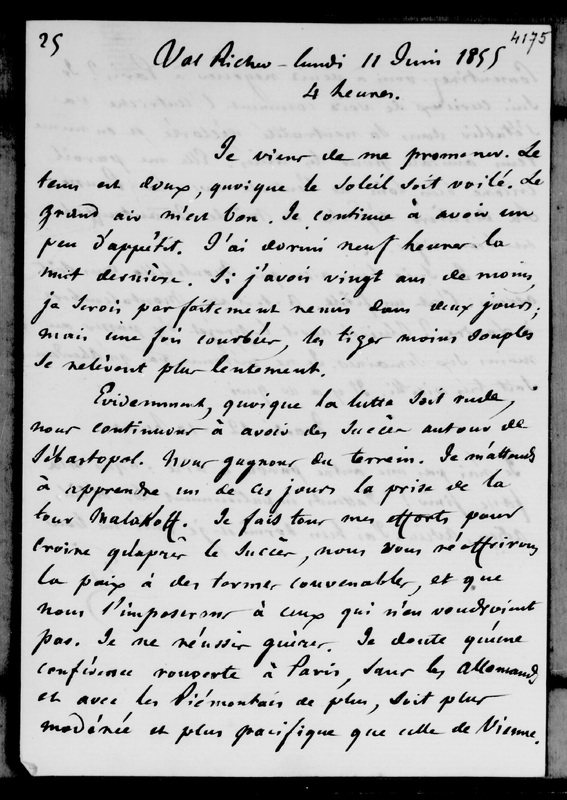 25
4175
Val Richer - lundi 11 Juin 1855
4 heures.
Je viens de me promener. Le
tems est doux, quoique le Soleil soit voilé. Le
grand air m'est bon. Je continue à avoir un
peu d'appétit. J'ai dormi neuf heures la
nuit dernière. Si j'avois vingt ans de moins,
je serois parfaitement remis dans deux jours;
mais une fois courbées, les tiges moins souples
se relèvent plus lentement.
Evidemment, quoique la lutte soit rude,
nous continuons à avoir des succès autour de
Sébastopol. Nous gagnons du terrein. Je m'attends
à apprendre un de ces jours la prise de la
tour Malakoff. Je fais tous mes efforts pour
croire qu'après le succès, nous vous réoffrirons
la paix à des termes convenables, et que
nous l'imposerons à ceux qui n'en voudroient
pas. Je ne réussis guères. Je doute qu'une
conférence rouverte à Paris, sans les Allemands
et avec les Piémontais de plus, soit plus
modérée et plus pacifique que celle de Vienne.